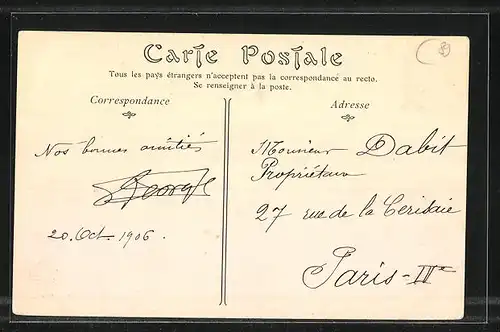 Carte Postale
Tous les pays étrangers n'acceptent pas la correspondance au recto.
Se renseigner à la poste.
Correspondance
Nos bonnes amitiés
George
20. Oct. 1906.
Adresse
Monsieur Dabit
Propriétaire
27 rue de la Cerisaie
Paris-IVe